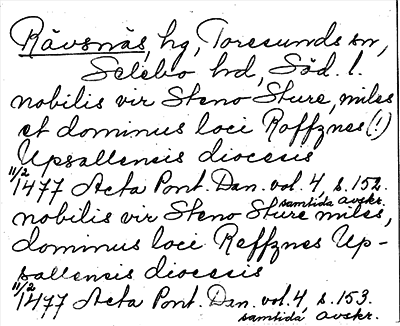 Rävsnäs, hg, Toresunds sn,
Selebo hd, Söd. l.
nobilis vir Steno Sture, miles
et dominus loci Roffznes (!)
Upsallensis diocesis
11/2
1477 Acta Pont. Dan. vol. 4, s. 152.
samtida avskr.
nobilis vir Steno Sture miles,
dominus loci Reffznes Up-
sallensis diocesis
11/2
1477 Acta Pont. Dan. vol. 4, s. 153.
samtida avskr.